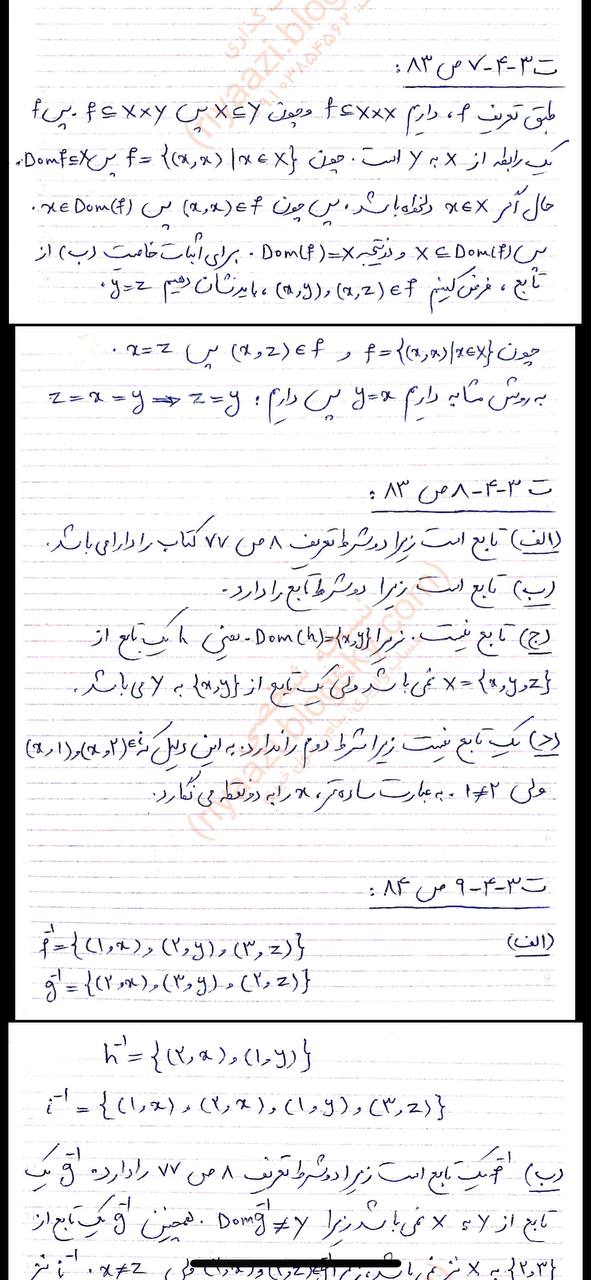 ت ۳-۴-۷ ص ۸۳:
طبق تعریف f، داریم f⊆X×X وچون X⊆Y پس f⊆X×Y. پس f
یک رابطه از X به Y است. چون f={(x,x)|x∈X} پس Domf⊆X.
حال اگر x∈X دلخواه باشد، پس چون (x,x)∈f پس x∈Dom(f).
پس X⊆Dom(f) و درنتیجه Dom(f)=X. برای اثبات خاصیت (ب) از
تابع، فرض کنیم (x,y),(x,z)∈f، باید نشان دهیم y=z.
چون f={(x,x)|x∈X} و (x,z)∈f پس x=z.
به روش مشابه داریم y=x پس داریم: z=x=y ⇒ z=y
ت ۳-۴-۸ ص ۸۳:
(الف) تابع است زیرا دو شرط تعریف ۸ ص ۷۷ کتاب را دارا می باشد.
(ب) تابع است زیرا دو شرط تابع را دارد.
(ج) تابع نیست. زیرا Dom(h)={x,y}. یعنی h یک تابع از
X={x,y,z} نمی باشد ولی یک تابع از {x,y} به Y می باشد.
(د) یک تابع نیست زیرا شرط دوم را ندارد. به این دلیل که (x,1),(x,۲)∈i
ولی 1≠۲. به عبارت ساده تر، x را به دو نقطه می نگارد.
ت ۳-۴-۹ ص ۸۴:
(الف) f⁻¹={(1,x),(۲,y),(۳,z)}
g⁻¹={(۲,x),(۳,y),(۲,z)}
h⁻¹={(۲,x),(1,y)}
i⁻¹={(1,x),(۲,x),(1,y),(۳,z)}
(ب) f⁻¹ یک تابع است زیرا دو شرط تعریف ۸ ص ۷۷ را دارد. g⁻¹ یک
تابع از Y به X نمی باشد زیرا Domg⁻¹≠Y. همچنین g⁻¹ یک تابع از
{۲,۳} به X نیز نمی باشد، زیرا ولی x≠z. i⁻¹ نیز